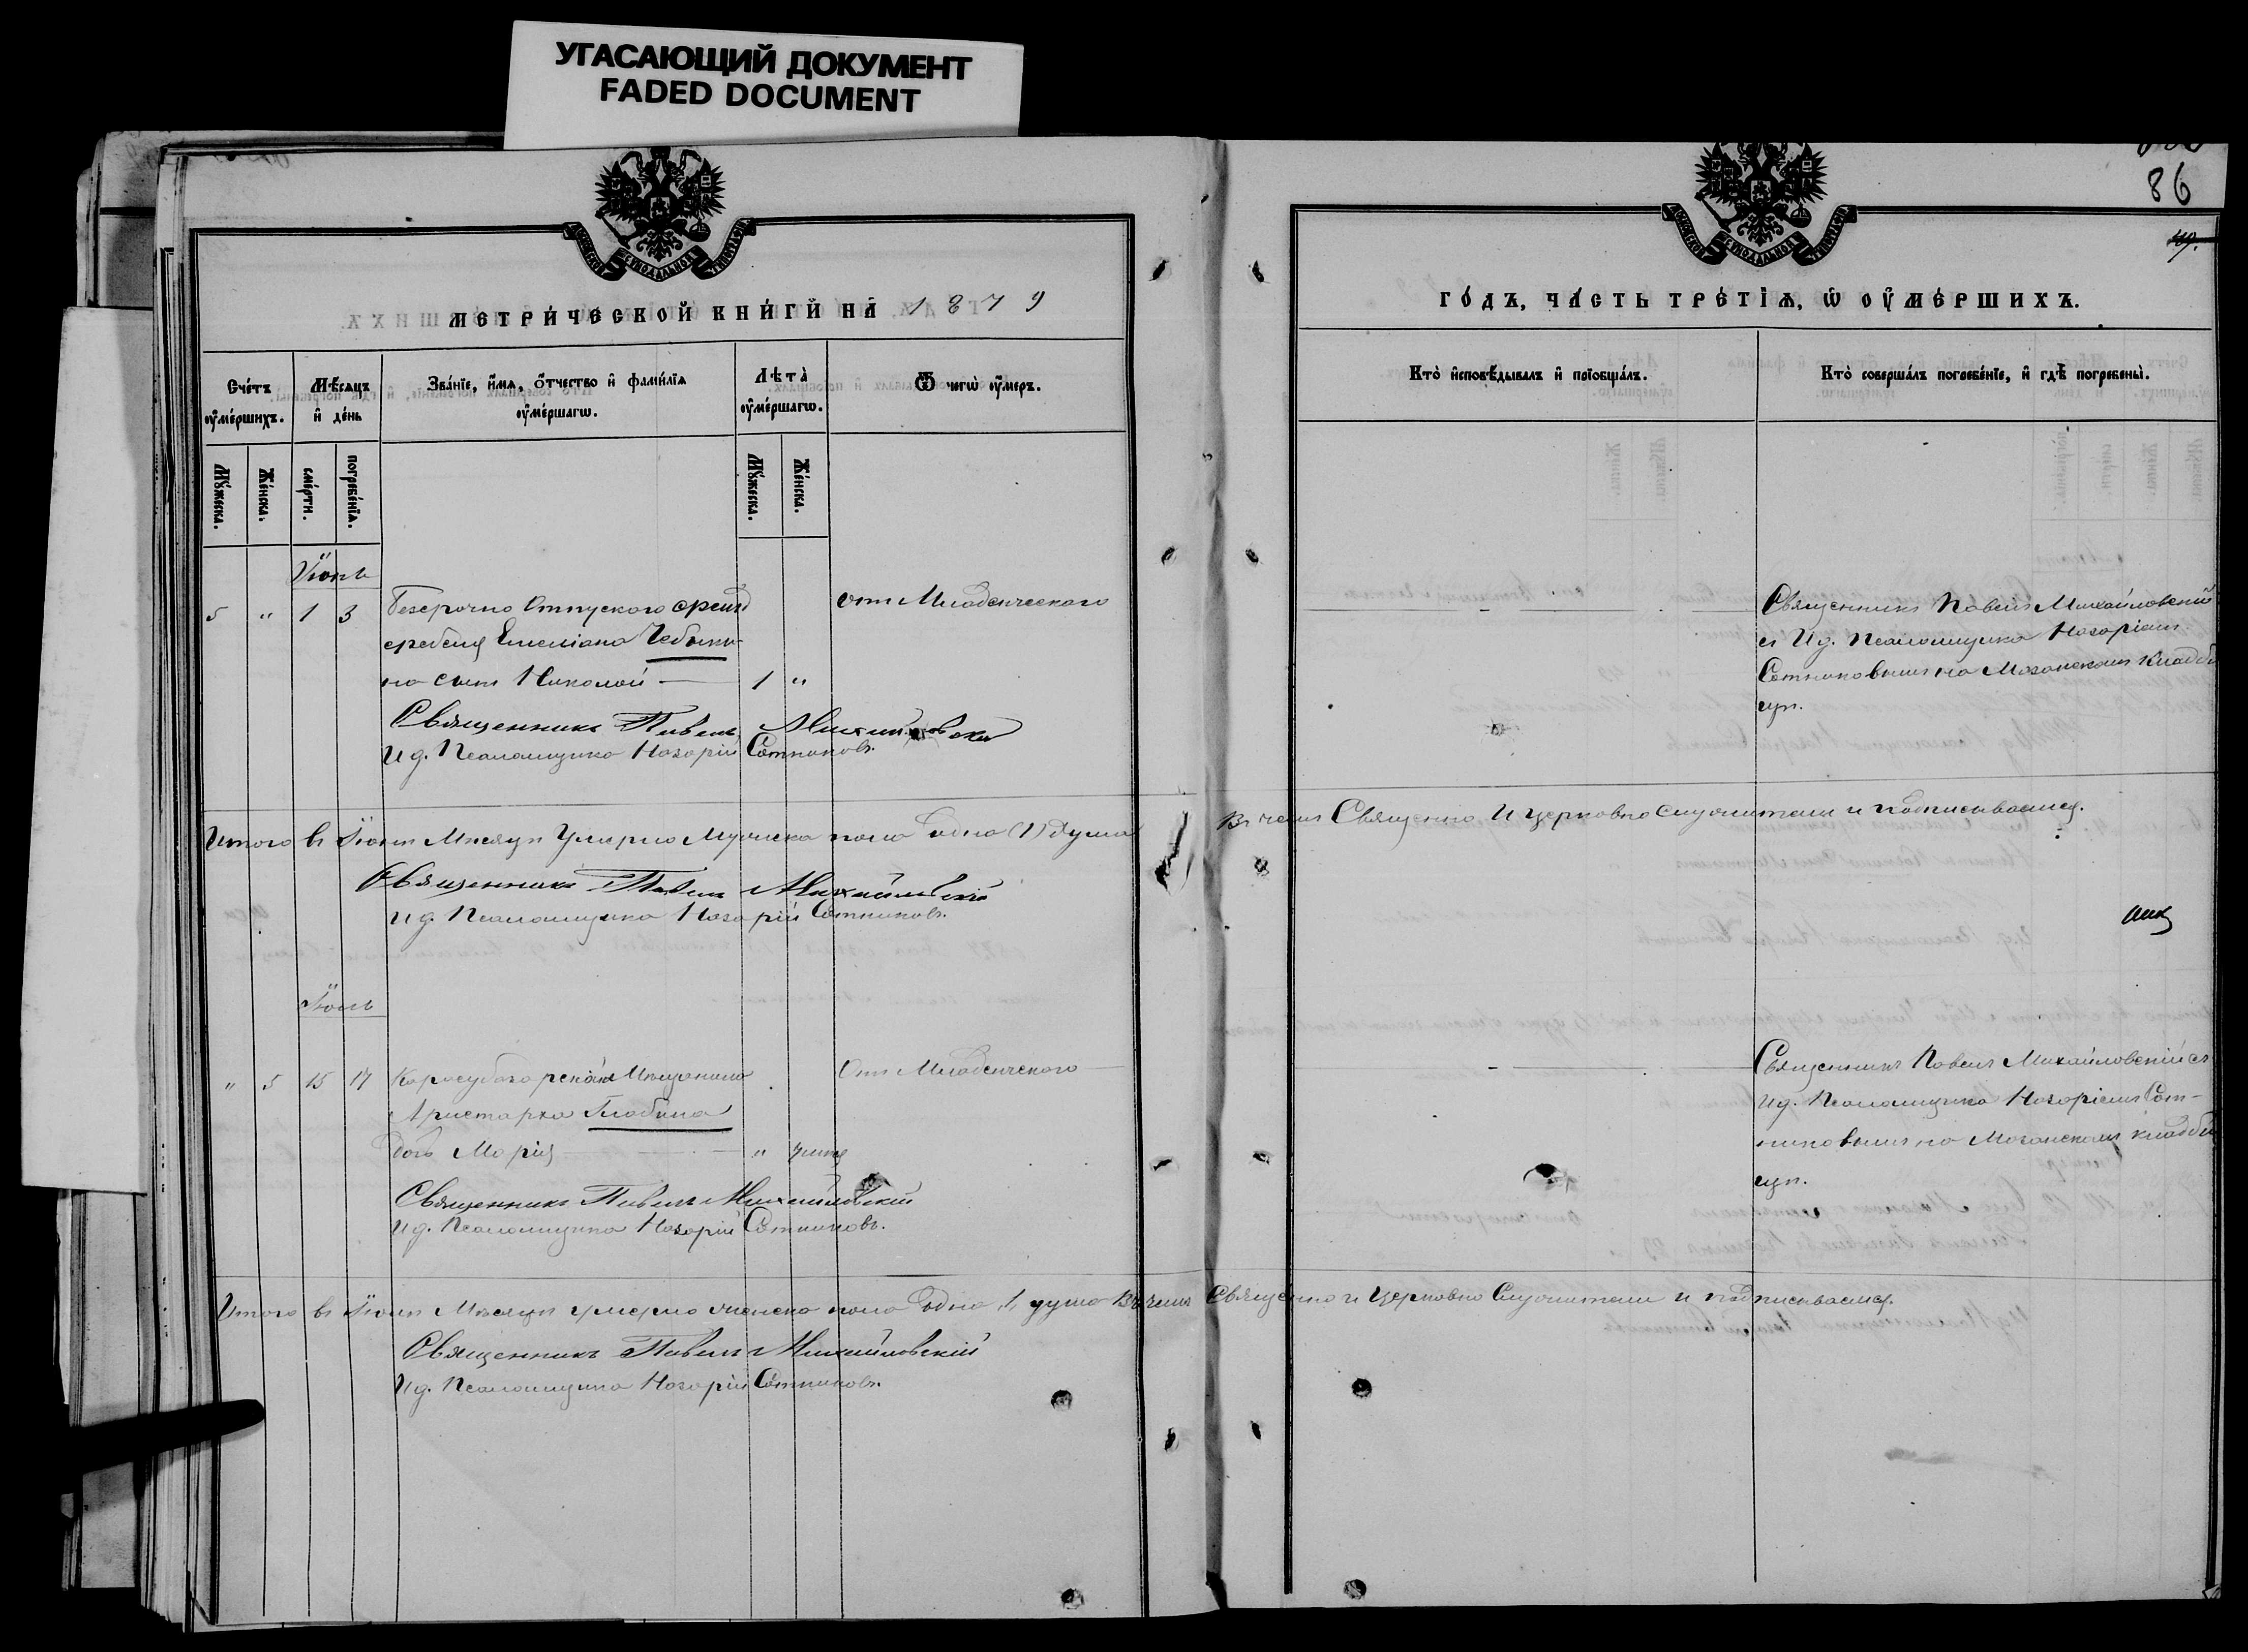 УГАСАЮЩИЙ ДОКУМЕНТ
FADED DOCUMENT
86
МЕТРИ́ЧЕСКОЙ КНИ́ГИ НА̀ 1879
ГО́ДЪ, ЧА́СТЬ ТРЕ́ТІѦ, Ѡ҆ ОУ҆МЕ́РШИХЪ.
Сче́тъ оу҆ме́ршихъ.
Мѣ́сяцъ и҆ де́нь
Зва́нїе, и҆́мя, ѻ҆́тчество и҆ фамі́лїя оу҆ме́ршагѡ.
Лѣта̀ оу҆ме́ршагѡ.
Ѿ чегѡ̀ оу҆́меръ.
Кто̀ и҆сповѣ́дывалъ и҆ прїобща́лъ.
Кто̀ соверша́лъ погребе́нїе, и҆ гдѣ̀ погребены̀.
Мꙋ́жеска.
Же́нска.
сме́рти.
погребе́нїя.
Мꙋ́жеска.
Же́нска.
Іюнь
5 " 1 3 Безсрочно Отпускного
Емеліана Чебыки-
на сынъ Николай — 1 "
отъ Младенческаго
Священникъ Павелъ Михайловскій
съ И д. Псаломщика Назаріемъ
Сотниковымъ на Мазанскомъ кладби
щѣ.
Священникъ Павелъ Михайловскій
И д. Псаломщика Назарій Сотниковъ.
Итого въ Іюнѣ Мѣсяцѣ Умерло Мужеска пола одна (1) душа
въ чемъ Священно и церковно служители и подписываемся.
Священникъ Павелъ Михайловскій
И д. Псаломщика Назарій Сотниковъ.
Іюль
" 5 15 17 Карасубазарскаго Мѣщанина
Аристарха Глобина
дочь Марія — "
Отъ Младенческаго
Священникъ Павелъ Михайловскій съ
И д. Псаломщика Назаріемъ Сот-
никовымъ на Мазанскомъ кладби
щѣ.
Священникъ Павелъ Михайловскій
И д. Псаломщика Назарій Сотниковъ.
Итого въ Іюлѣ Мѣсяцѣ умерло женска пола одна 1, душа въ чемъ Священно и Церковно Служители и подписываемся.
Священникъ Павелъ Михайловскій
И д. Псаломщика Назарій Сотниковъ.